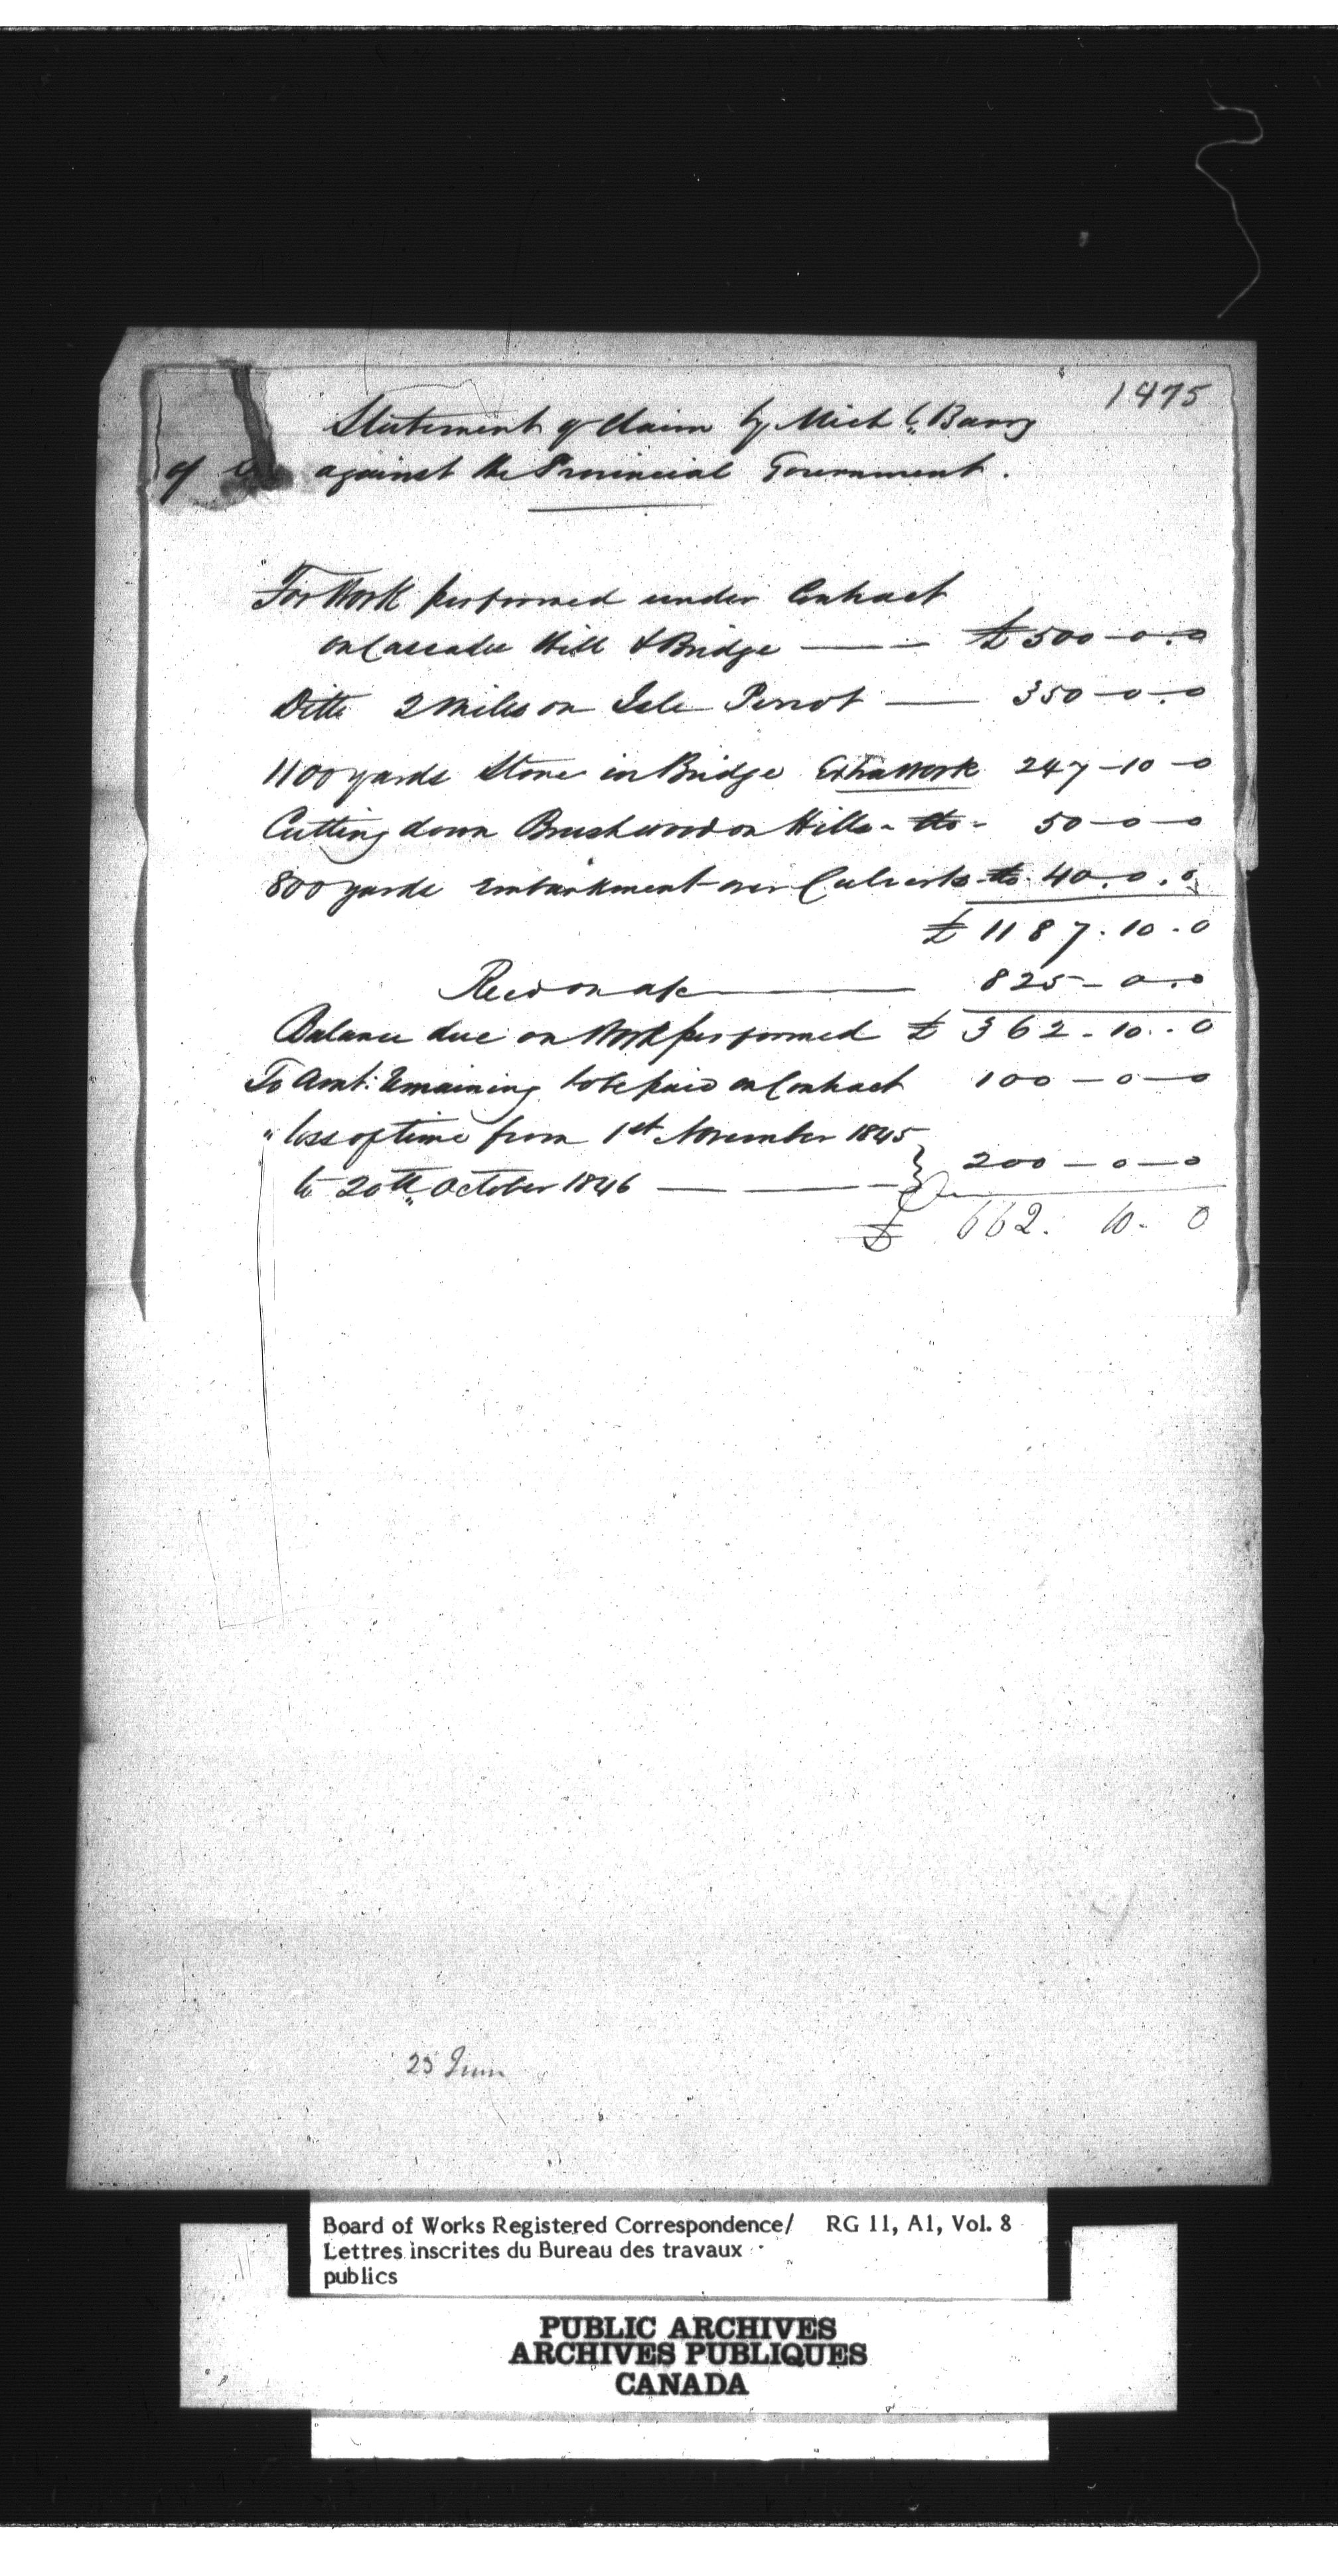 1475
Statement of Claim by Mich l. Barry
of against the Provincial Government.
For Work performed under Contract
on Cascades Hill & Bridge — £ 500-0.0
Ditto 2 Miles on Isle Perrot — 350-0-0
1100 yards Stone in Bridge Extra Work 247-10-0
Cutting down Brushwood on Hills - do - 50-0-0
800 yards Embankment over Culverts do. 40.0.0
£ 1187.10.0
Recd on a/c — 825-0.0
Balance due on Work performed £ 362-10..0
To Amt: Remaining to be paid on Contract 100-0-0
" loss of time from 1st November 1845
to 20th October 1846 — } 200-0-0
£ 662. 10- 0
23 June
Board of Works Registered Correspondence/ RG 11, A1, Vol. 8
Lettres inscrites du Bureau des travaux
publics
PUBLIC ARCHIVES
ARCHIVES PUBLIQUES
CANADA